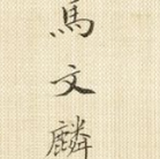 馬文麟